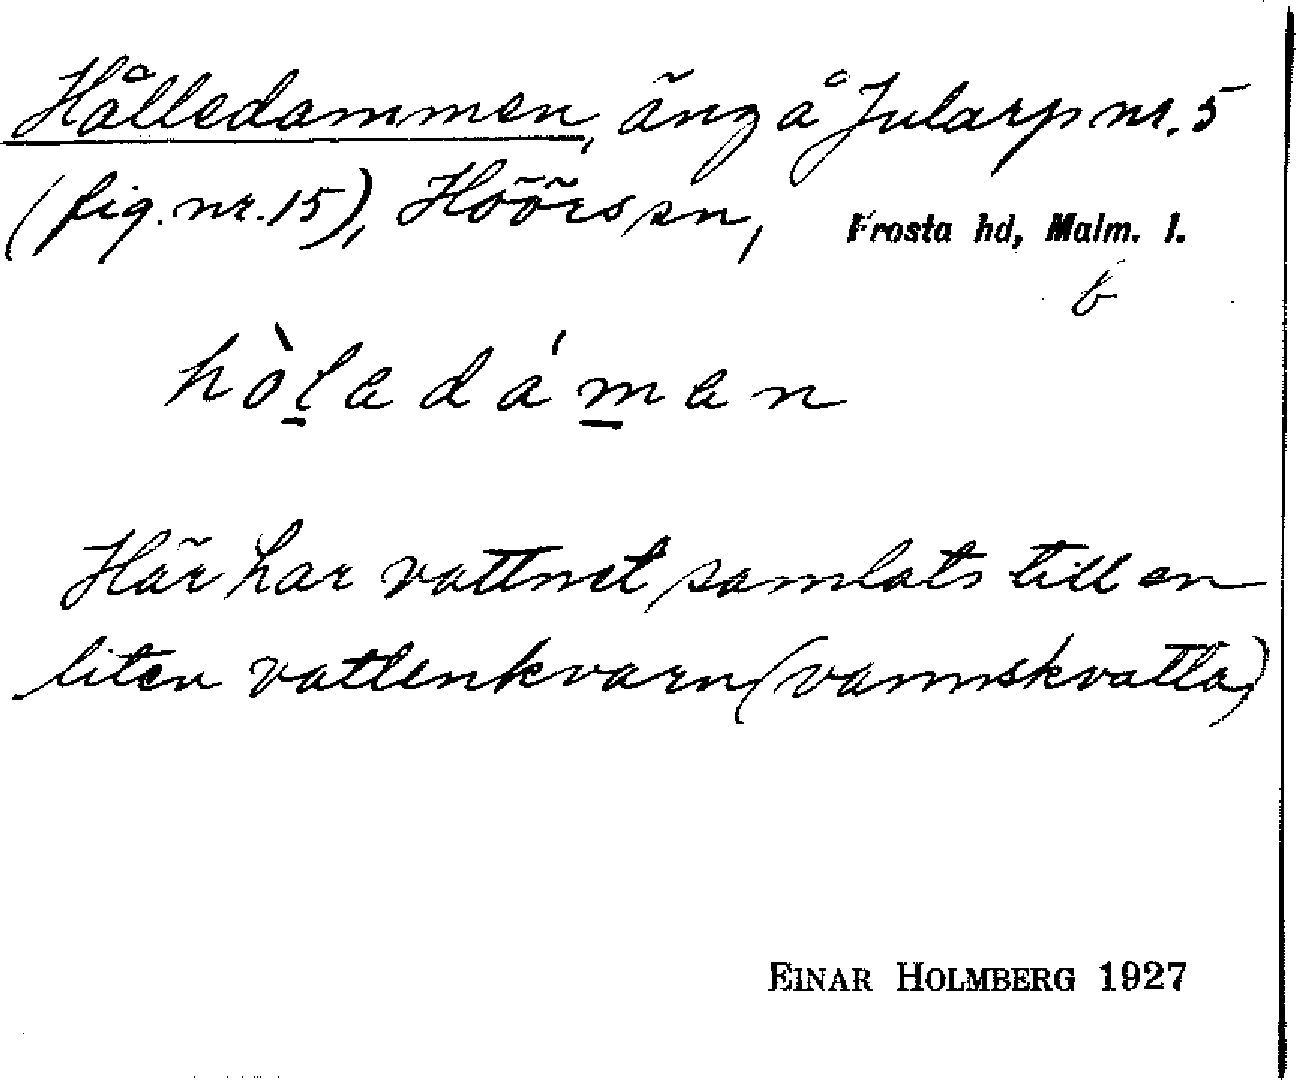 Hålledammen, äng å Jularp nr. 5
(fig. nr. 15), Höörs sn, Frosta hd, Malm. l.
b
hòl̲edám̲en
Här har vattnet samlats till en
liten vattenkvarn (vannskvatta)
EINAR HOLMBERG 1927